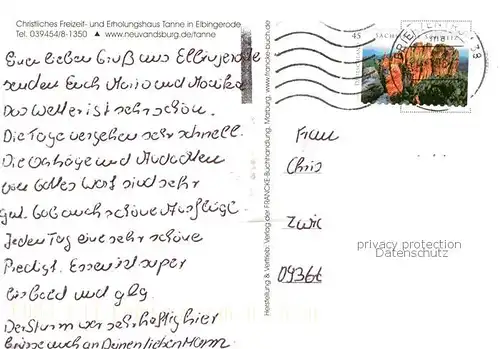 Christliches Freizeit- und Erholungshaus Tanne in Elbingerode
Tel. 039454/8-1350 ▲ www.neuvandsburg.de/tanne
Einen lieben Gruß aus Elbingerode
senden Euch Mario und Monika
Das Wetter ist sehr schön.
Die Tage vergehen sehr schnell.
Die Vorträge und Andachten
von Gottes Wort sind sehr
gut. Gab auch schöne Ausflüge.
Jeden Tag eine sehr schöne
Predigt. Essen ist super
und
Der Sturm war sehr heftig hier
Grüsse auch an Deinen lieben Mann.
Herstellung & Vertrieb: Verlag der FRANCKE-Buchhandlung, Marburg, www.francke-buch.de
45
SÄCHS
SCHWEIZ
BRIEF
38
Frau
Chris
Zwic
09366
privacy protection
Datenschutz